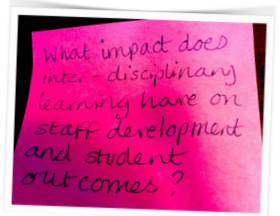 What impact does
inter-disciplinary
learning have on
staff development
and student
outcomes?